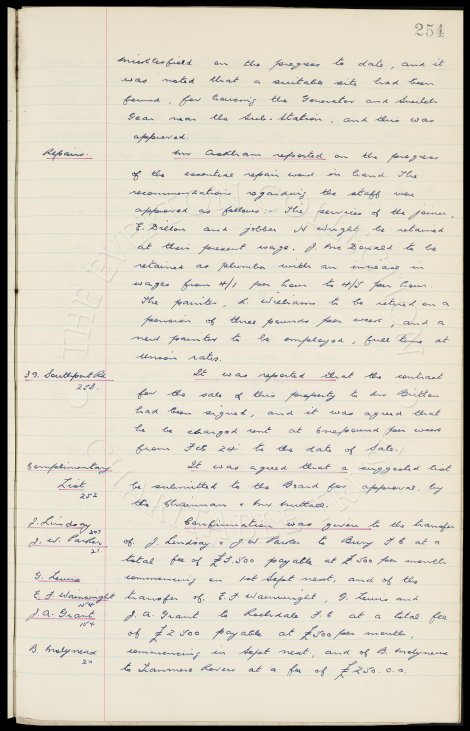 254
on the progress to date, and it
was noted that a suitable site had been
found, for housing the Generator and Switch
Gear near the Sub-Station, and this was
approved.
Repairs. Mr reported on the progress
of the essential repair work in hand. The
recommendations regarding the staff were
approved as follows:- The services of the joiner,
E. Dillon and jobber N Wright be retained
at their present wage. J. McDonald to be
retained as plumber with an increase in
wages from 4/1 per hour to 4/5 per hour.
The painter, L. Williams to be retired on a
pension of three pounds per week, and a
new painter to be employed, full time at
Union rates.
39. Southport Rd It was reported that the contract
258. for the sale of this property to Mr Britton
had been signed, and it was agreed that
he be charged rent at one pound per week
from Feb 24th to the date of Sale.
Complimentary It was agreed that a suggested list
List be submitted to the Board for approval by
252 the Chairman & Mr
J. Lindsay 207 Confirmation was given to the transfer
J. W. Parker 21 of J. Lindsay & J. W. Parker to Bury F.C at a
total fee of £3,500 payable at £500 per month
G. Lewis commencing on 1st Sept next, and of the
E. F Wainwright 154 transfer of E. F Wainwright, G. Lewis and
J. A. Grant 154 J. A. Grant to Rochdale F.C at a total fee
of £2500 payable at £500 per month,
B. Molyneux commencing in Sept next, and of B. Molyneux
20 to Tranmere Rovers at a fee of £250.0.0.